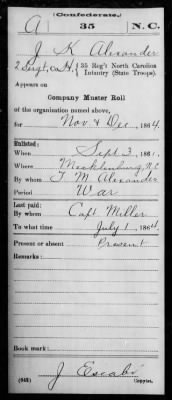 (Confederate.)
A 35 N.C.
J K Alexander
2 Sergt, Co. H, 35 Reg't North Carolina
Infantry (State Troops).
Appears on
Company Muster Roll
of the organization named above,
for Nov & Dec, 1864.
Enlisted:
When Sept 3, 186
Where Mecklenburg, N.C.
By whom T M Alexander
Period War
Last paid:
By whom Capt Miller
To what time July 1, 1864
Present or absent Present
Remarks:
Book mark:
J Escabi
Copyist.